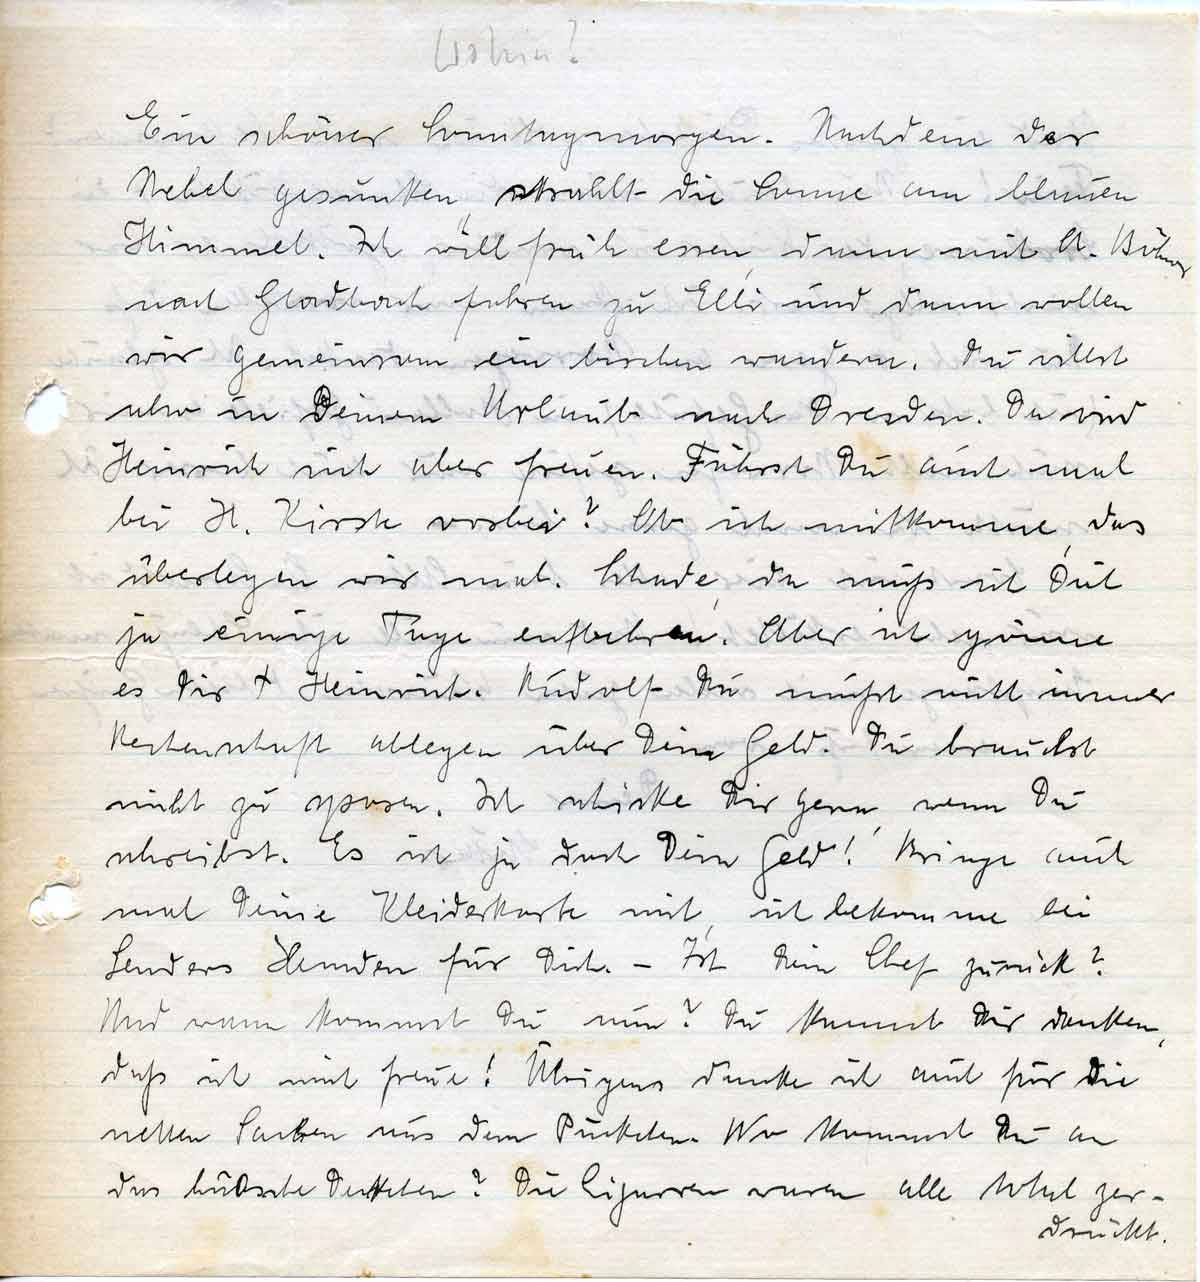 Wohin?
Ein schöner Sonntagmorgen. Nachdem der
Nebel gesunken, strahlt die Sonne am blauen
Himmel. Ich will früh essen, dann mit A. Böhmer
nach Gladbach fahren zu Elli und dann wollen
wir gemeinsam ein bischen wandern. Du willst
also in Deinem Urlaub nach Dresden. Da wird
Heinrich sich aber freuen. Fährst Du auch mal
bei H. Kirste vorbei? Ob ich mitkomme, das
überlegen wir mal. Schade, da muß ich Dich
ja einige Tage entbehren. Aber ich gönne
es Dir + Heinrich. Rudolf Du mußt nicht immer
Rechenschaft ablegen über Dein Geld. Du brauchst
nicht zu sparen. Ich schicke Dir gern, wenn Du
schreibst. Es ist ja doch Dein Geld! Bringe auch
mal Deine Kleiderkarte mit, ich bekomme bei
Senders Hemden für Dich. – Ist Dein Chef zurück?
Und wann kommst Du nun? Du kannst Dir denken,
daß ich mich freue! Übrigens danke ich auch für die
netten Sachen aus dem Päckchen. Wo kommst Du an
das hübsche Deckchen? Die Zigarren waren alle total zer-
drückt.